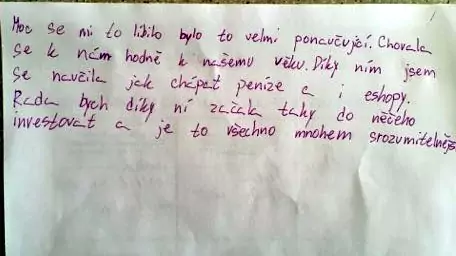 Moc se mi to líbilo bylo to velmi ponaučující. Chovala
se k nám hodně k našemu věku. Díky ním jsem
se naučila jak chápat peníze a i eshopy.
Ráda bych díky ní začala taky do něčeho
investovat a je to všechno mnohem srozumitelnějš